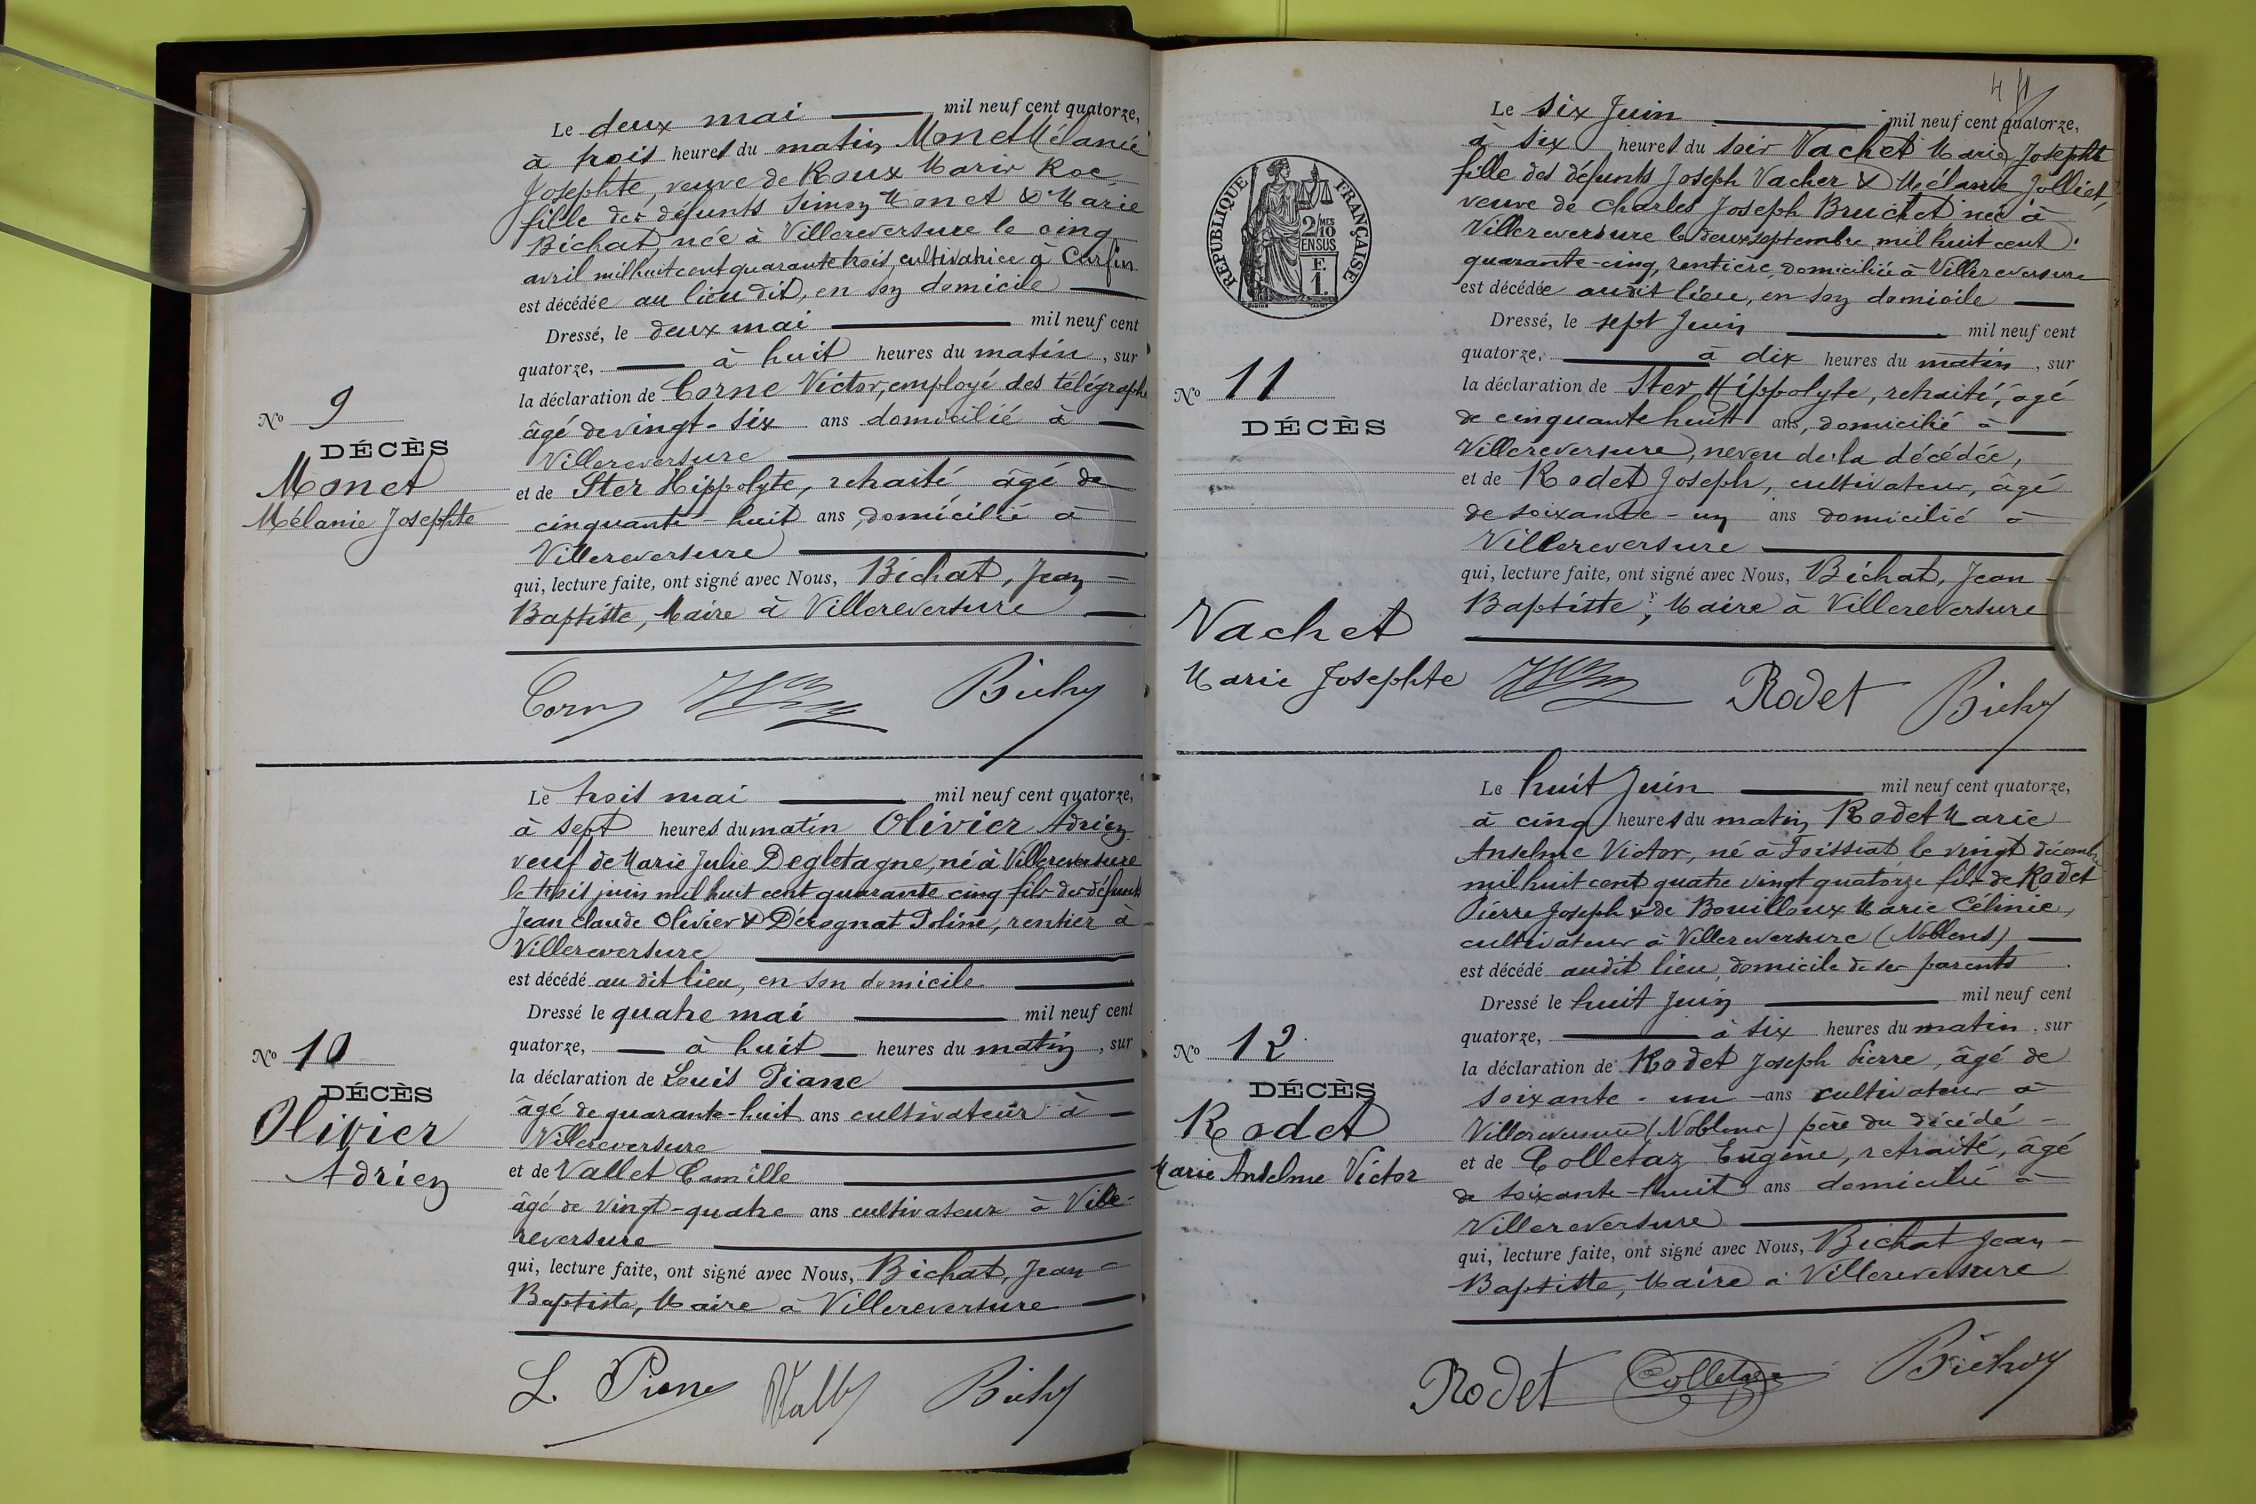 Le deux mai mil neuf cent quatorze,
à trois heures du matin Monet Mélanie
Josephte, veuve de Roux Marie Roc,
fille des défunts Simon Monet & Marie
Bichat, née à Villereversure le cinq
avril mil huit cent quarante trois, cultivatrice à Curfin
est décédée au lieu dit, en son domicile
Dressé, le deux mai mil neuf cent
quatorze, à huit heures du matin, sur
la déclaration de Corne Victor, employé des télégraphe
âgé de vingt-six ans domicilié à
Villereversure
et de Ster Hippolyte, retraité âgé de
cinquante-huit ans, domicilié à
Villereversure
qui, lecture faite, ont signé avec Nous, Bichat, Jean
Baptiste, Maire à Villereversure
No 9
DÉCÈS
Monet
Mélanie Josephte
Le trois mai mil neuf cent quatorze,
à sept heures du matin Olivier Adrien
veuf de Marie Julie Degletagne, né à Villereversure
le trois juin mil huit cent quarante cinq fils des défunts
Jean Claude Olivier & Dérognat Poline, rentier à
Villereversure
est décédé au dit lieu, en son domicile
Dressé le quatre mai mil neuf cent
quatorze, à huit heures du matin, sur
la déclaration de Louis Piane
âgé de quarante-huit ans cultivateur à
Villereversure
et de Vallet Camille
âgé de vingt-quatre ans cultivateur à Ville-
reversure
qui, lecture faite, ont signé avec Nous, Bichat, Jean
Baptiste, Maire à Villereversure
No 10
DÉCÈS
Olivier
Adrien
L. Piane
4
RÉPUBLIQUE FRANÇAISE
2/10 MES
EN SUS
F.
1.
Le six Juin mil neuf cent quatorze,
à six heures du soir Vachet Marie Josephte
fille des défunts Joseph Vacher & Mélanie Jolliet,
veuve de Charles Joseph Bruchet née à
Villereversure le deux septembre mil huit cent
quarante-cinq, rentière, domiciliée à Villereversure
est décédée audit lieu, en son domicile
Dressé, le sept Juin mil neuf cent
quatorze, à dix heures du matin, sur
la déclaration de Ster Hippolyte, retraité, âgé
de cinquante huit ans, domicilié à
Villereversure, neveu de la décédée,
et de Rodet Joseph, cultivateur, âgé
de soixante-un ans domicilié à
Villereversure
qui, lecture faite, ont signé avec Nous, Bichat, Jean-
Baptiste, Maire à Villereversure
No 11
DÉCÈS
Vachet
Marie Josephte
Rodet
Le huit Juin mil neuf cent quatorze,
à cinq heures du matin Rodet Marie
Anselme Victor, né à Foissiat le vingt décembre
mil huit cent quatre vingt quatorze fils de Rodet
Pierre Joseph & de Bouilloux Marie Célinie,
cultivateur à Villereversure (Noblens)
est décédé audit lieu, domicile de ses parents
Dressé le huit Juin mil neuf cent
quatorze, à six heures du matin, sur
la déclaration de Rodet Joseph Pierre, âgé de
soixante-un ans cultivateur à
Villereversure (Noblens) père du décédé
et de Colletaz Eugène, retraité, âgé
de soixante-huit ans domicilié à
Villereversure
qui, lecture faite, ont signé avec Nous, Bichat Jean-
Baptiste, Maire à Villereversure
No 12
DÉCÈS
Rodet
Marie Anselme Victor
Rodet Colletaz